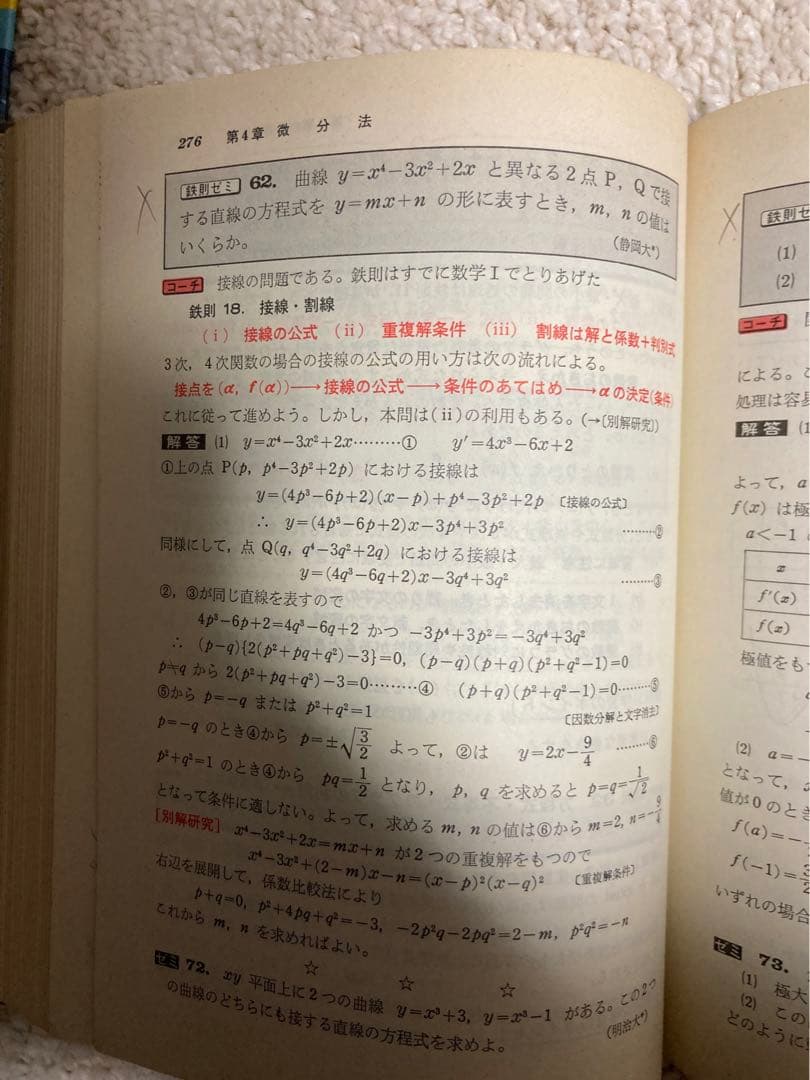 276 第4章 微分法
鉄則ゼミ 62. 曲線 y=x⁴−3x²+2x と異なる2点P, Qで接
する直線の方程式を y=mx+n の形に表すとき, m, n の値は
いくらか。 (静岡大*)
コーチ 接線の問題である。鉄則はすでに数学Ⅰでとりあげた
鉄則 18. 接線・割線
(ⅰ) 接線の公式 (ⅱ) 重複解条件 (ⅲ) 割線は解と係数+判別式
3次, 4次関数の場合の接線の公式の用い方は次の流れによる。
接点を(α, f(α))→接線の公式→条件のあてはめ→αの決定(条件)
これに従って進めよう。しかし, 本問は(ⅱ)の利用もある。(→[別解研究])
解答 (1) y=x⁴−3x²+2x………① y′=4x³−6x+2
①上の点 P(p, p⁴−3p²+2p) における接線は
y=(4p³−6p+2)(x−p)+p⁴−3p²+2p 〔接線の公式〕
∴ y=(4p³−6p+2)x−3p⁴+3p² ………②
同様にして, 点 Q(q, q⁴−3q²+2q) における接線は
y=(4q³−6q+2)x−3q⁴+3q² ………③
②, ③が同じ直線を表すので
4p³−6p+2=4q³−6q+2 かつ −3p⁴+3p²=−3q⁴+3q²
∴ (p−q){2(p²+pq+q²)−3}=0, (p−q)(p+q)(p²+q²−1)=0
p≠q から 2(p²+pq+q²)−3=0………④ (p+q)(p²+q²−1)=0………⑤
⑤から p=−q または p²+q²=1 〔因数分解と文字消去〕
p=−q のとき④から p=±√(3/2) よって, ②は y=2x−9/4 ………⑥
p²+q²=1 のとき④から pq=1/2 となり, p, q を求めると p=q=1/√2
となって条件に適しない。よって, 求める m, n の値は⑥から m=2, n=−9/4
[別解研究] x⁴−3x²+2x=mx+n が2つの重複解をもつので
x⁴−3x²+(2−m)x−n=(x−p)²(x−q)² 〔重複解条件〕
右辺を展開して, 係数比較法により
p+q=0, p²+4pq+q²=−3, −2p²q−2pq²=2−m, p²q²=−n
これから m, n を求めればよい。
☆ ☆ ☆
ゼミ 72. xy 平面上に2つの曲線 y=x³+3, y=x³−1 がある。この2つ
の曲線のどちらにも接する直線の方程式を求めよ。 (明治大*)
鉄則ゼ
(1)
(2)
コーチ
による。
処理は容易
解答 (1
よって, a
f(x) は極
a<−1
x
f′(x)
f(x)
極値をも
(2) a=−
となって,
値が0のとき
f(a)=−
f(−1)=
いずれの場合
ゼミ 73.
(1) 極大
(2) この
どのように